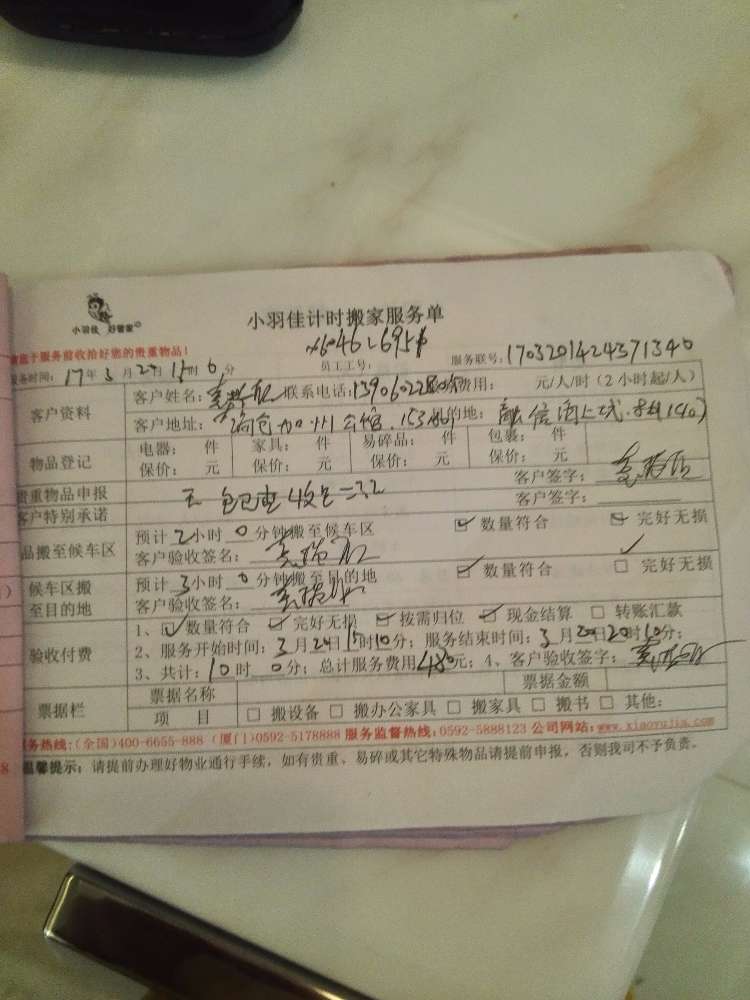 小羽佳 好管家
小羽佳计时搬家服务单
请于服务前收拾好您的贵重物品!
员工工号: 服务联号: 1703201424371340
服务时间: 17年3月24日15时0分
客户资料
客户姓名: 联系电话: 费用: 元/人/时 (2小时起/人)
客户地址: 目的地:
物品登记
电器: 件 家具: 件 易碎品: 件 包裹: 件
保价: 元 保价: 元 保价: 元 保价: 元
贵重物品申报 无 客户签字:
客户特别承诺 客户签字:
品搬至候车区
预计2小时0分钟搬至候车区 ☑ 数量符合 ☑ 完好无损
客户验收签名:
候车区搬至目的地
预计3小时0分钟搬至目的地 ☑ 数量符合 ☐ 完好无损
客户验收签名:
验收付费
1、☑ 数量符合 ☑ 完好无损 ☑ 按需归位 ☑ 现金结算 ☐ 转账汇款
2、服务开始时间: 3月24日15时10分; 服务结束时间: 3月24日20时10分;
3、共计: 10时0分; 总计服务费用480元; 4、客户验收签字:
票据栏
票据名称 票据金额
项 目 ☐ 搬设备 ☐ 搬办公家具 ☐ 搬家具 ☐ 搬书 ☐ 其他:
服务热线: (全国)400-6655-888 (厦门)0592-5178888 服务监督热线: 0592-5888123 公司网站: www.xiaoyujia.com
温馨提示: 请提前办理好物业通行手续, 如有贵重、易碎或其它特殊物品请提前申报, 否则我司不予负责。